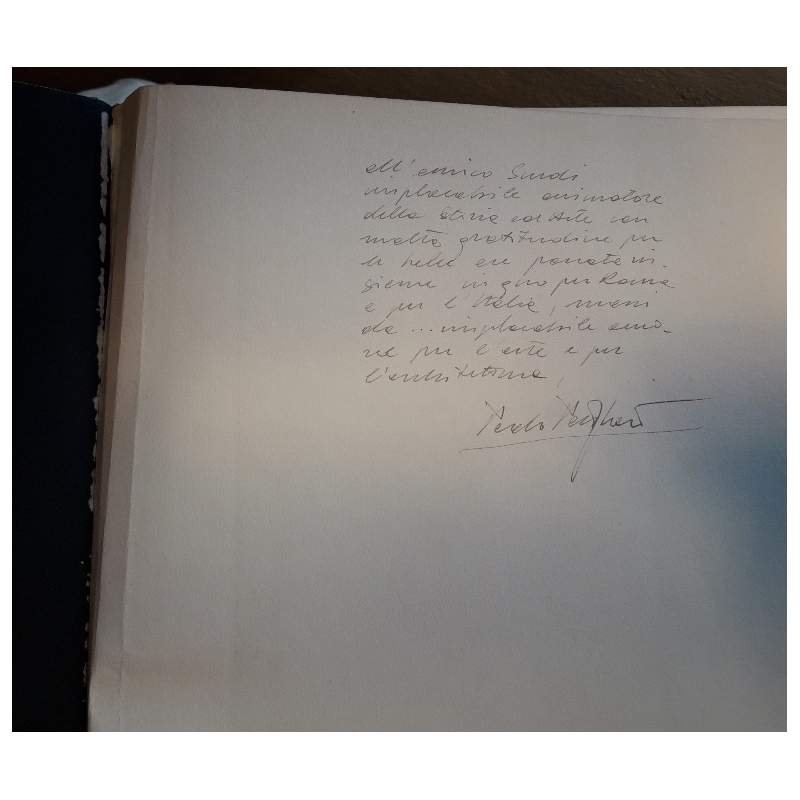 all'amico Sandi
implacabile animatore
della storia ed arte con
molta gratitudine per
le belle ore passate in-
sieme in giro per Roma
e per l'Italia, mossi
da ... implacabile amo-
re per l'arte e per
l'architettura,
Paolo Portoghesi